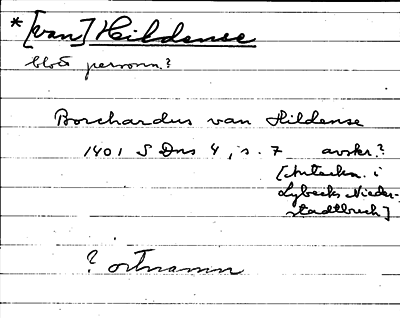 * [van] Hildense
blott personn.?
Borchardus van Hildense
1401 SDns 4, s. 7 avskr.?
[Anteckn. i
Lybecks Nieder-
stadtbuch]
? ortnamn